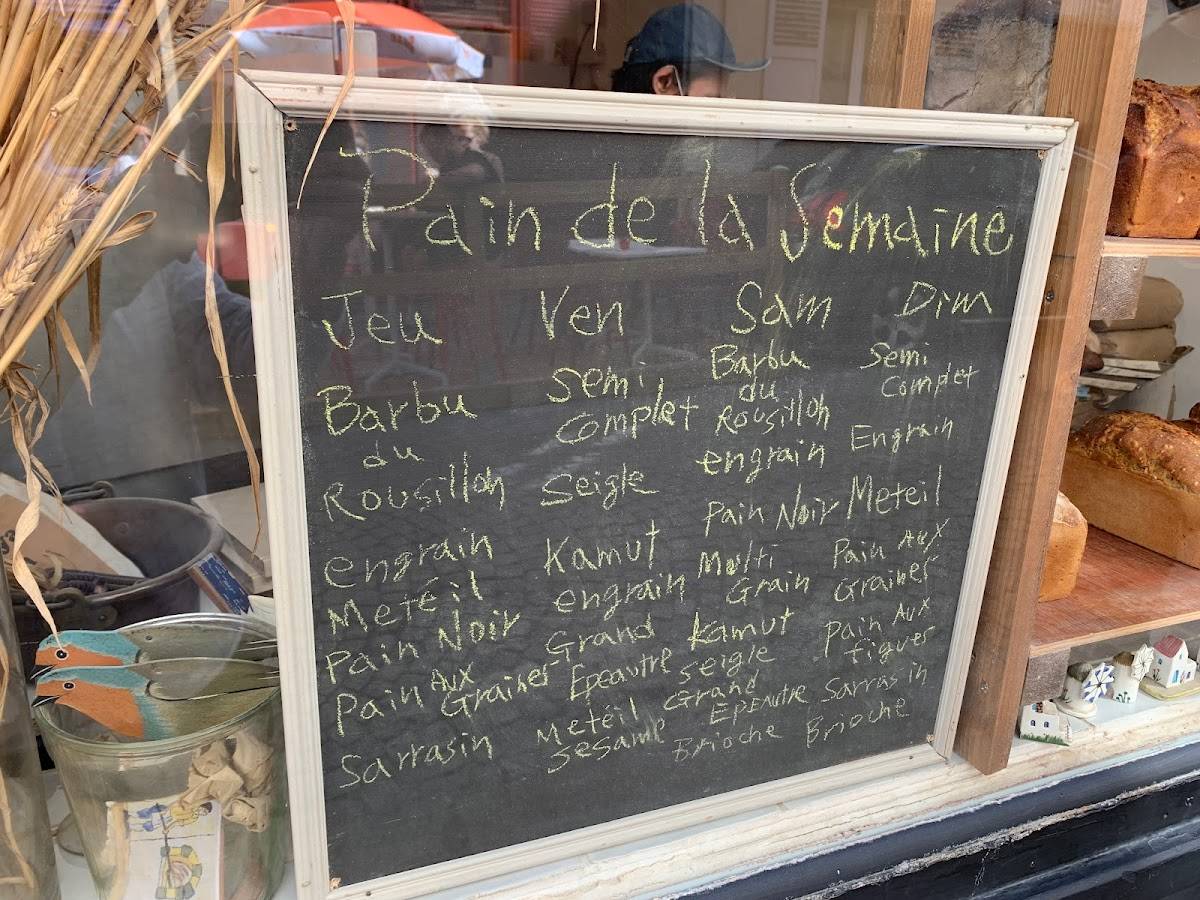 Pain de la Semaine
Jeu
Barbu
du
Rousillon
engrain
Metéil
Pain Noir
Pain Aux
Graines
Sarrasin
Ven
semi
complet
Seigle
Kamut
engrain
Grand
Epeautre
Metéil
sesame
Sam
Barbu
du
Rousillon
engrain
Pain Noir
Multi
Grain
Kamut
seigle
Grand
Epeautre
Brioche
Dim
Semi
Complet
Engrain
Meteil
Pain Aux
Graines
Pain Aux
figues
Sarrasin
Brioche